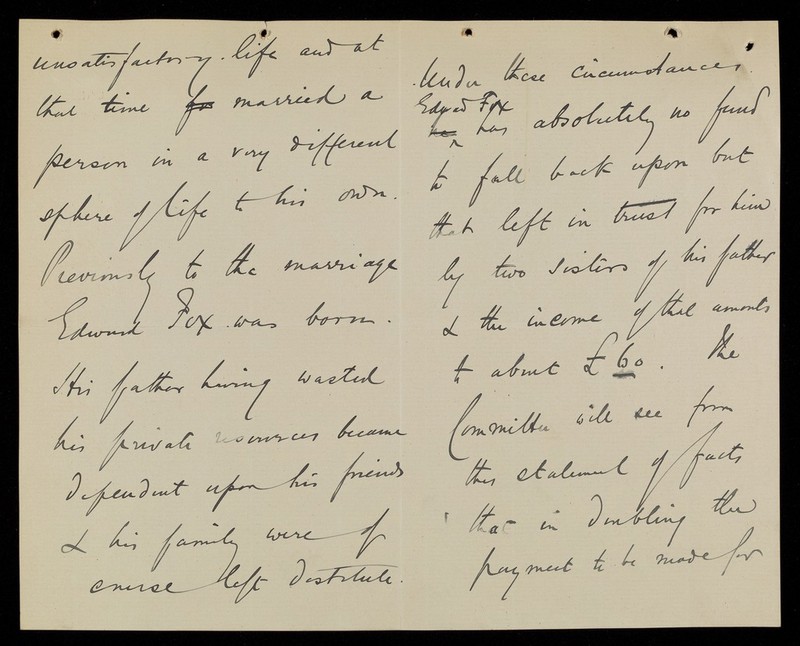 unsatisfactory life and at
that time fo married a
person in a very different
sphere of life to his own.
Previously to the marriage
Edward Fox was born.
His father having wasted
his private resources became
dependent upon his friends
& his family were of
course left destitute.
Under these circumstances
Edward Fox
he ^ has absolutely no fund
to fall back upon but
that left in trust for him
by two sisters of his father
& the income of that amounts
to about £60. The
Committee will see from
this statement of facts
that in doubling the
payment to be made for